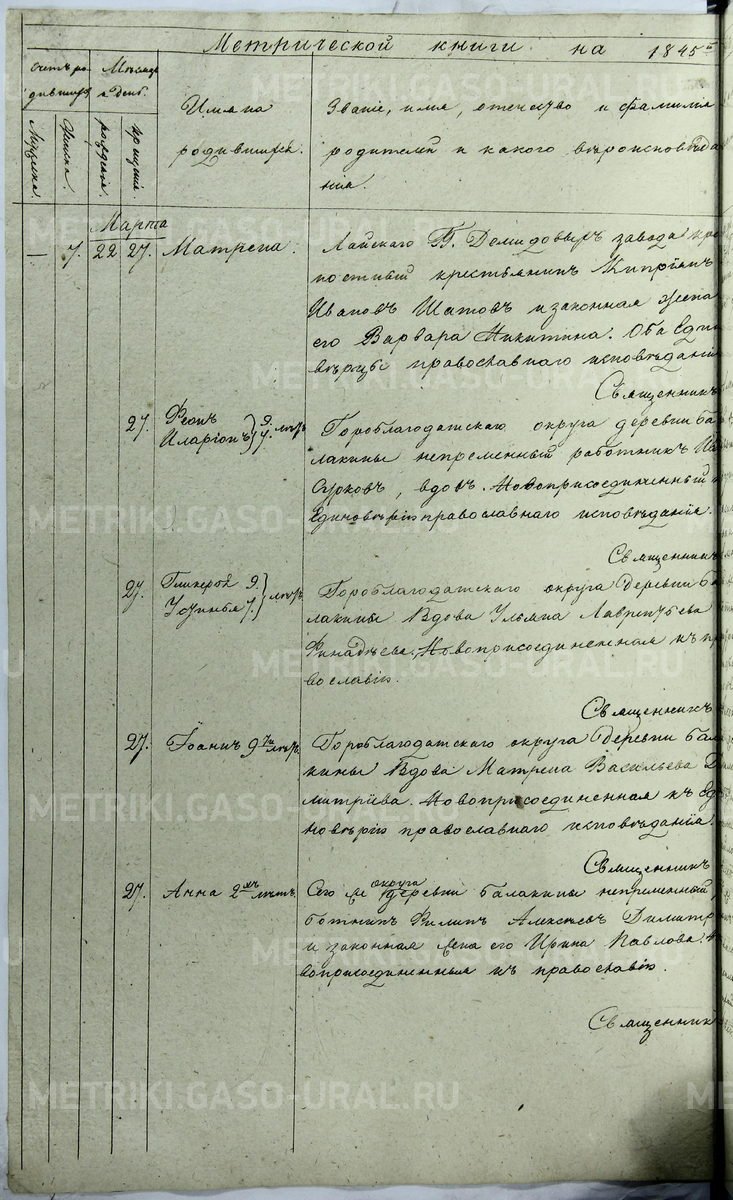 Метрической книги на 1845й
Счетъ ро-
дившихся
Мѣсяцъ
и день.
Мужеска.
Женска.
рожденія.
крещенія.
Имяна
родившихся.
Званіе, имя, отечество и фамилія
родителей и какого вѣроисповѣда-
нія.
Марта
— 7. 22 27. Матрена.
Лайскаго Г. Демидовыхъ завода крѣ
постный крестьянинъ Кипріянъ
Ивановъ Шатовъ и законная жена
его Варвара Никитина. Оба Един
вѣрцы православнаго исповѣданія
Священникъ
27. Феонъ 9.
Иларіонъ 7. лѣтъ
Гороблагодатскаго округа деревни Ба
лакины непременный работникъ
Сурковъ, вдовъ. Новоприсоединенный
Единовѣрію православнаго исповѣданія.
Священникъ
27. Гликерія 9.
Устинья 7. лѣтъ.
Гороблагодатскаго округа деревни Ба
лакины Вдова Ульяна Лаврентьева
Новоприсоединенная къ пр
вославію.
Священникъ
27. Іоаннъ 9ти лѣтъ.
Гороблагодатскаго округа деревни Бала
кины Вдова Матрена Васильева Д
митріева. Новоприсоединенная къ Еди
новѣрію православнаго исповѣданія.
Священникъ
27. Анна 2хъ лѣтъ.
Сего же округа деревни Балакины непременный
ботникъ Филипъ Алексѣевъ Димитр
и законная жена его Ирина Павлова. Н
воприсоединенныя къ православію.
Священникъ
METRIKI.GASO-URAL.RU